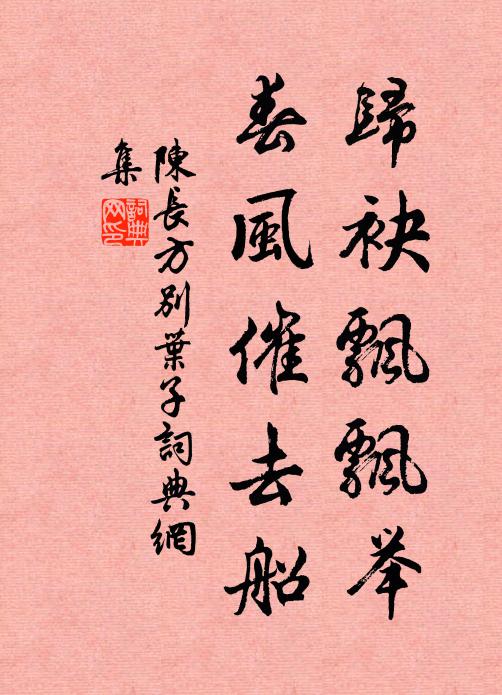 歸袂飄飄举
春風催去船
陳長方別葉子詞典網
集
詞典网印